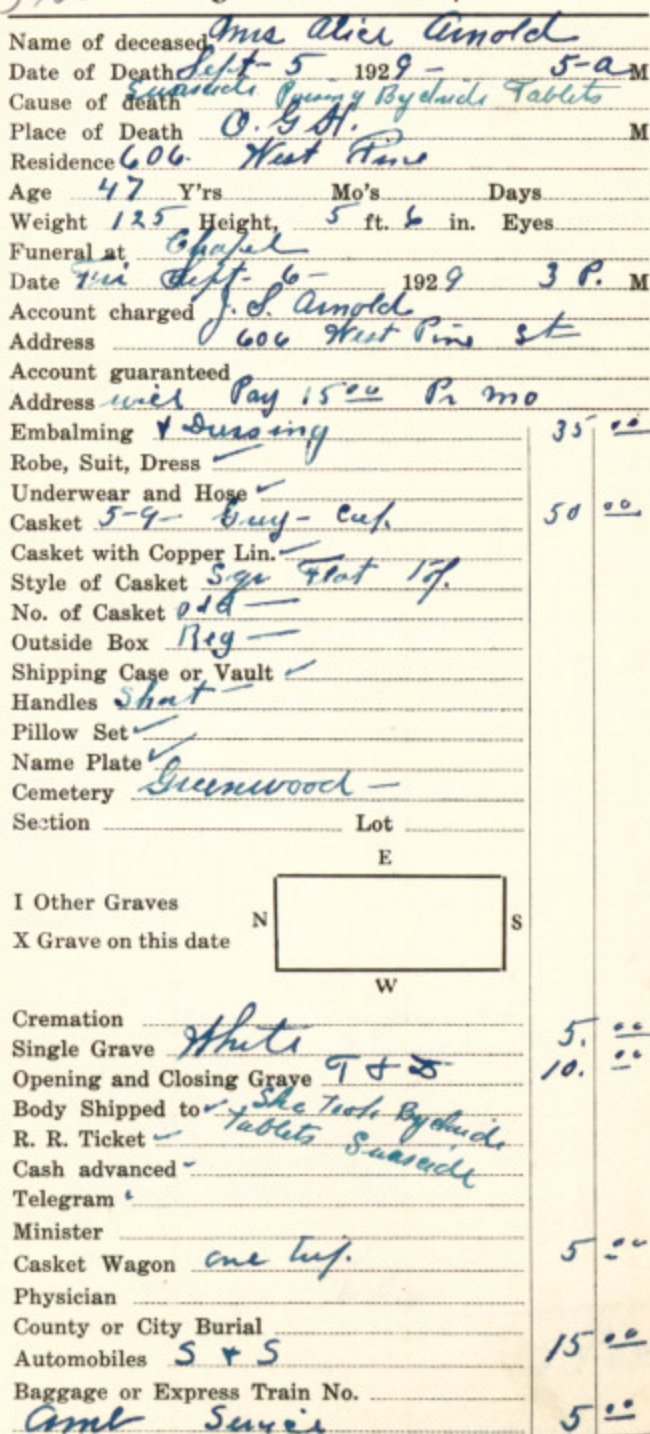 Name of deceased Mrs Alice Arnold
Date of Death Sept- 5 1929- 5-a M
Cause of death Suascide Bychide Tablets
Place of Death O. G. H. M
Residence 606 West Pine
Age 47 Y'rs Mo's Days
Weight 125 Height, 5 ft. 6 in. Eyes
Funeral at Chapel
Date Fri Sept- 6- 1929 3 P. M
Account charged J. S. Arnold
Address 606 West Pine St
Account guaranteed
Address will Pay 15 00 Pr mo
Embalming & Dressing 35 00
Robe, Suit, Dress ✓
Underwear and Hose ✓
Casket 5-9- Grey- 50 00
Casket with Copper Lin.
Style of Casket Sqr Flat
No. of Casket odd —
Outside Box Reg —
Shipping Case or Vault ✓
Handles Short —
Pillow Set ✓
Name Plate ✓
Cemetery Greenwood —
Section Lot
E
I Other Graves
N S
X Grave on this date
W
Cremation
Single Grave White 5. 00
Opening and Closing Grave T & D 10. 00
Body Shipped to ✓ She Took Bychide
R. R. Ticket Tablets Suascide
Cash advanced
Telegram
Minister
Casket Wagon one trip. 5 00
Physician
County or City Burial
Automobiles S & S 15 00
Baggage or Express Train No.
Amb Service 5 00